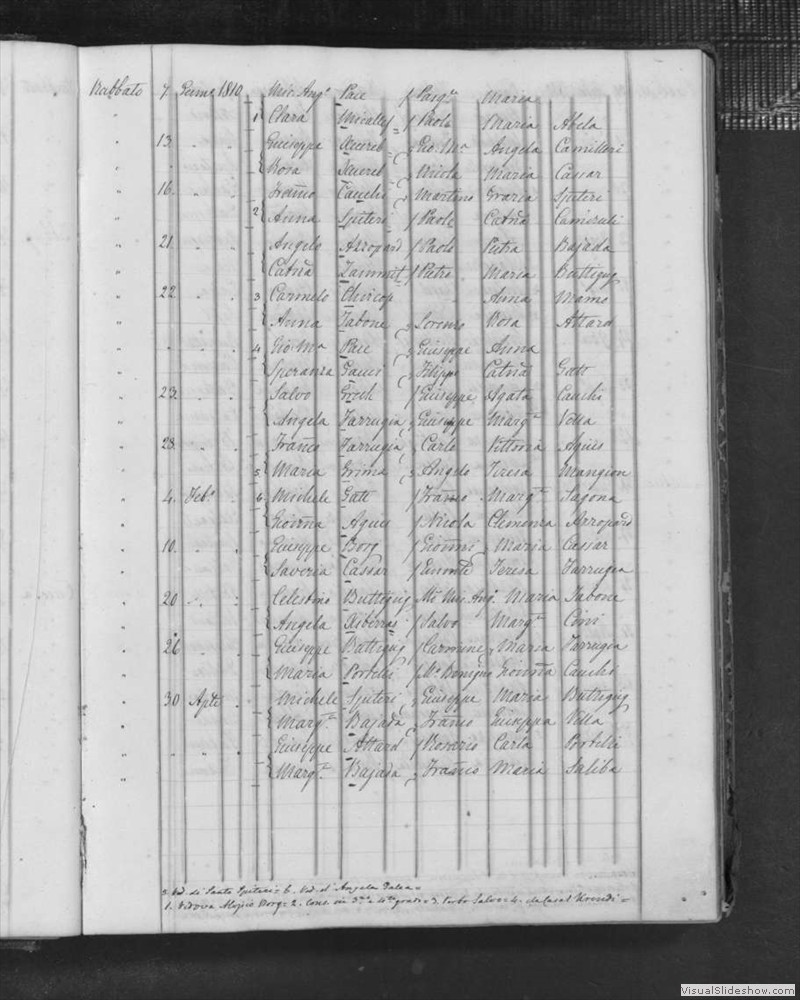 Rabbato 7. Genn. 1810 Mic. Ang.o Pace Pasq.e Maria
1 Clara Micallef Paolo Maria Abela
13 Giuseppe Xuereb Gio. Ma Angela Camilleri
Rosa Xuereb Nicola Maria Cassar
16 Franco Cauchi Martino Grazia Spiteri
2 Anna Spiteri Paolo Catna
21 Angelo Azzopard Paolo Petra Bajada
Catna Zammit Pietro Maria Buttigig
22 3 Carmelo Chircop Anna Mamo
Anna Tabone Lorenzo Rosa Attard
4 Gio Ma Pace Giuseppe Anna
Speranza Gauci Filippo Catna Gatt
23 Salvo Grech Giuseppe Agata Cauchi
Angela Farrugia Giuseppe Marg.ta Vella
28 Franco Farrugia Carlo Vittoria Agius
5 Maria Grima Angelo Teresa Mangion
4. Feb.o 6 Michele Gatt Franco Marg.ta Sagona
Giovna Agius Nicola Clemenza Azzopard
10 Giuseppe Borg Giovnni Maria Cassar
Saveria Cassar Teresa Farrugia
20 Celestino Buttigig Mic. Ang. Maria Tabone
Angela Salvo Marg.ta
26 Giuseppe Buttigig Carmine Maria Farrugia
Maria Portelli Giovna Cauchi
30 Aple Michele Spiteri Giuseppe Maria Buttigig
Marg.ta Bajada Franco Giuseppa Vella
Giuseppe Attard Rosario Carla Portelli
Marg.ta Bajada Franco Maria Saliba
Ved. di Santo Spiteri 6. Ved. d'Angelo
1. Vedova Aloysio Borg 2. Cons. in 3.o e 4.to grado 3. 4. da Casal
VisualSlideshow.com